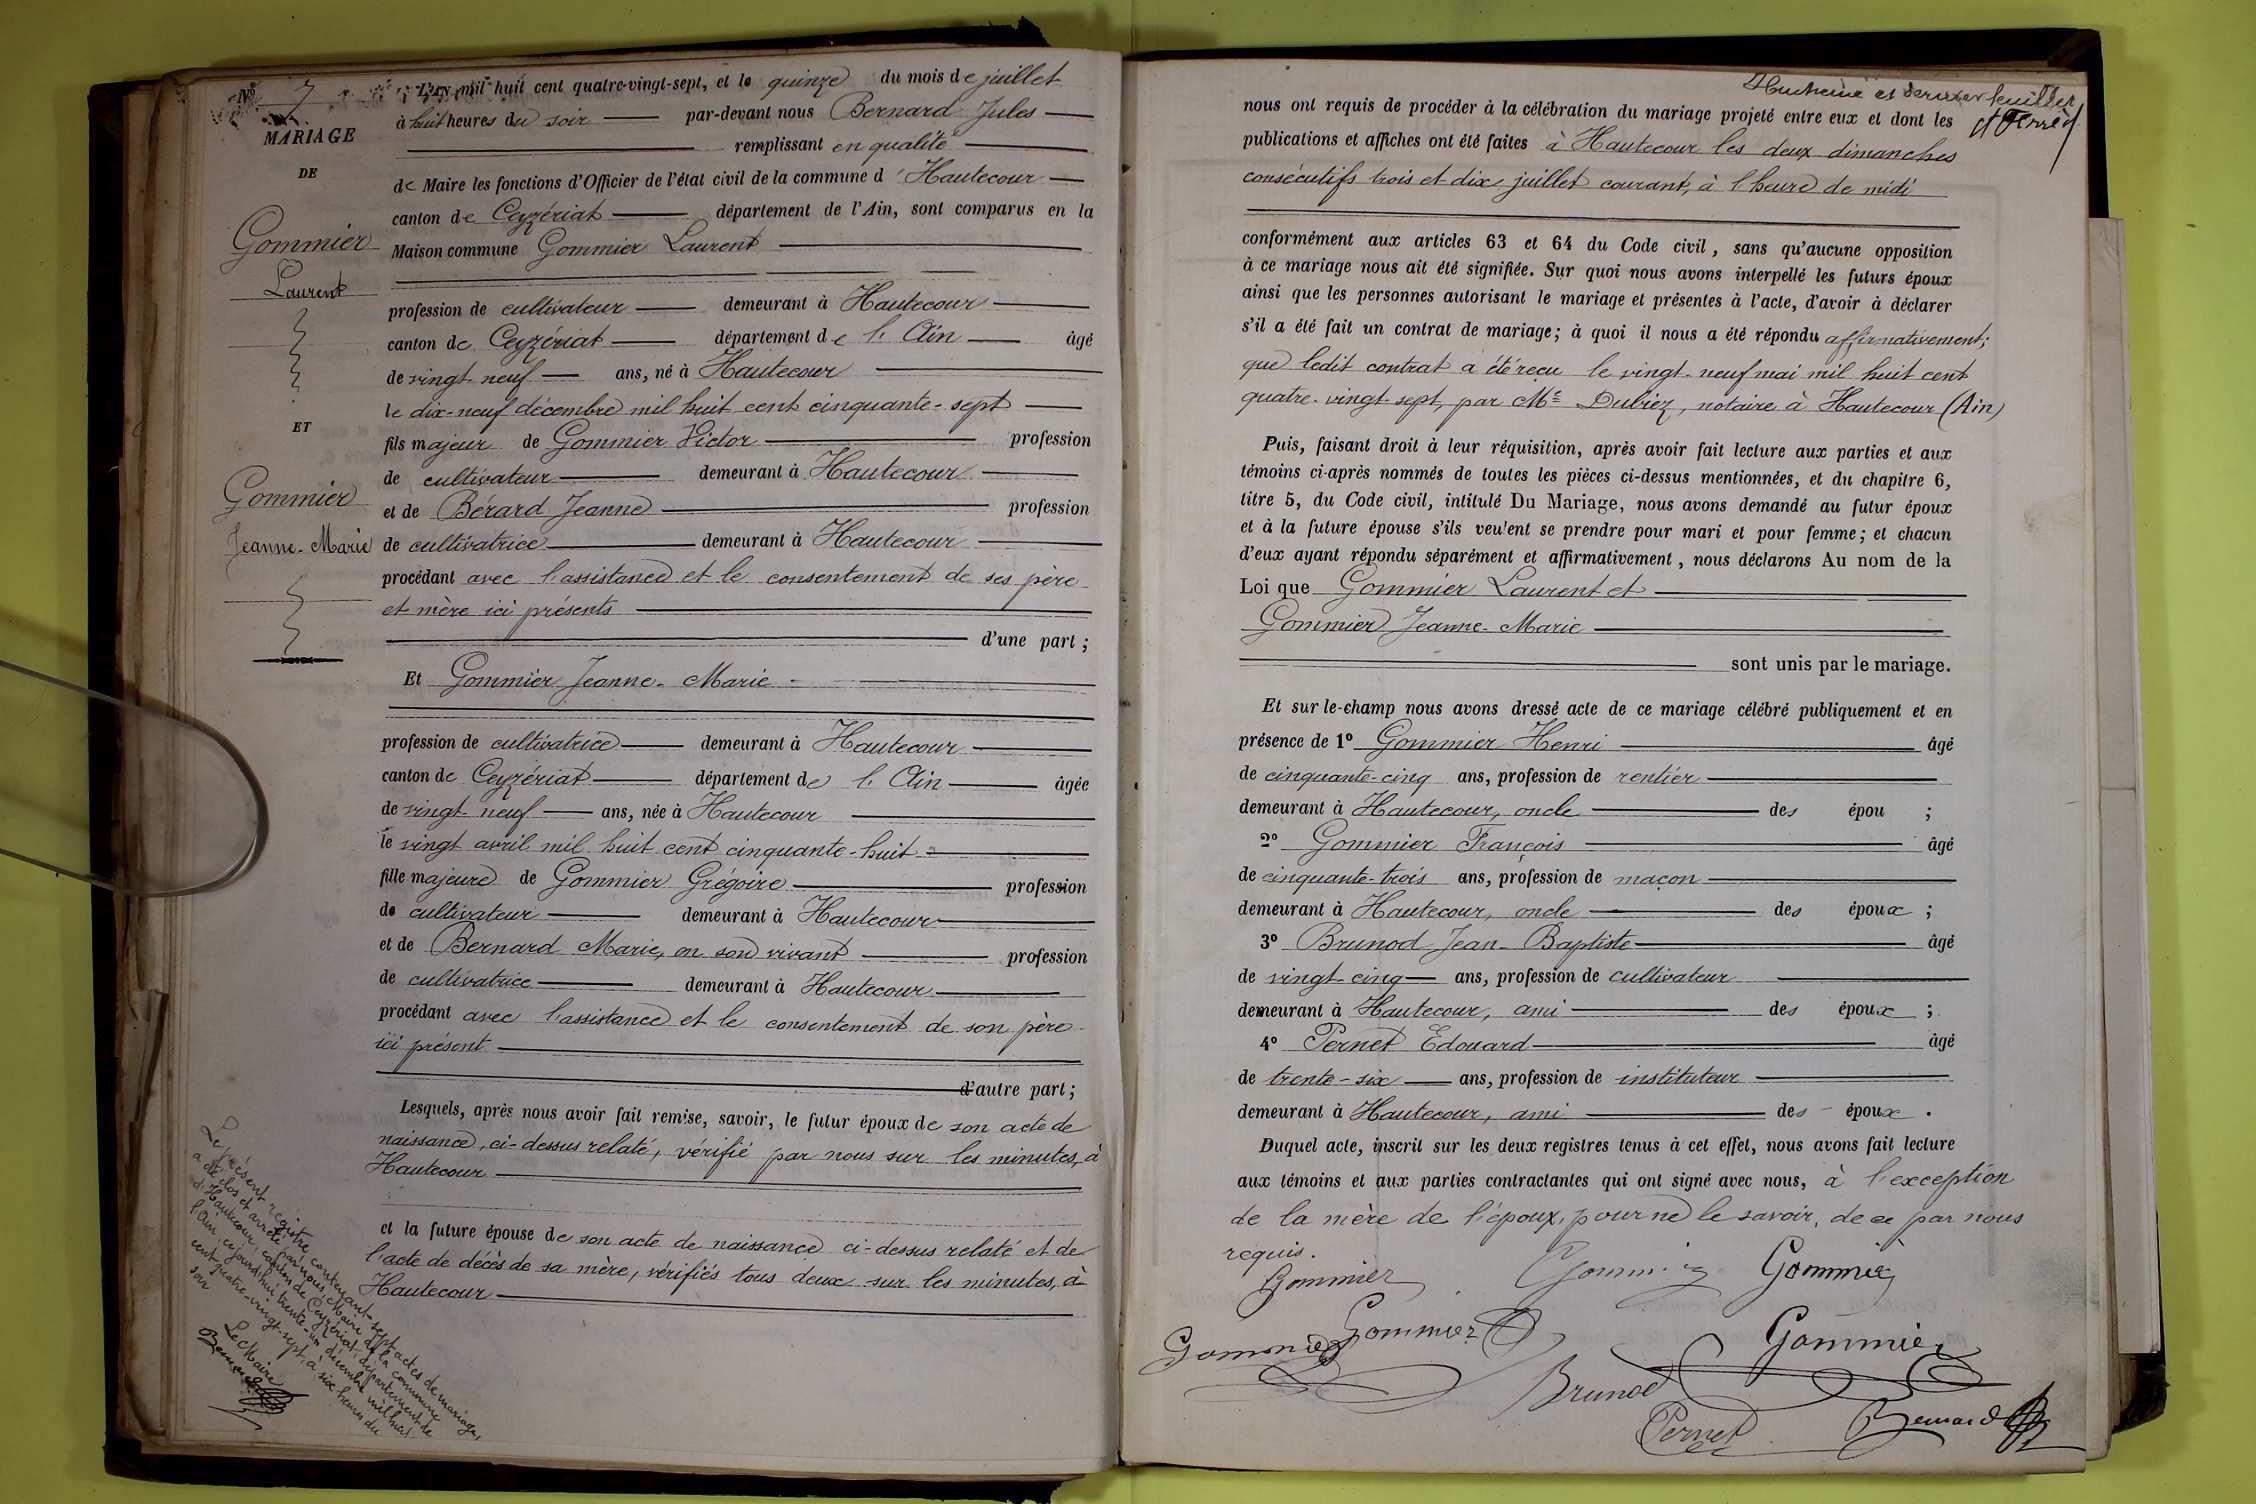 N° 7
MARIAGE
DE
Gommier
Laurent
ET
Gommier
Jeanne-Marie
L'AN mil huit cent quatre-vingt-sept, et le quinze du mois de juillet
à huit heures du soir par-devant nous Bernard Jules
remplissant en qualité
de Maire les fonctions d'Officier de l'état civil de la commune d'Hautecour
canton de Ceyzériat département de l'Ain, sont comparus en la
Maison commune Gommier Laurent
profession de cultivateur demeurant à Hautecour
canton de Ceyzériat département de l'Ain âgé
de vingt-neuf ans, né à Hautecour
le dix-neuf décembre mil huit cent cinquante-sept
fils majeur de Gommier Victor profession
de cultivateur demeurant à Hautecour
et de Bérard Jeanne profession
de cultivatrice demeurant à Hautecour
procédant avec l'assistance et le consentement de ses père
et mère ici présents
d'une part ;
Et Gommier Jeanne-Marie
profession de cultivatrice demeurant à Hautecour
canton de Ceyzériat département de l'Ain âgée
de vingt-neuf ans, née à Hautecour
le vingt avril mil huit cent cinquante-huit
fille majeure de Gommier Grégoire profession
de cultivateur demeurant à Hautecour
et de Bernard Marie, en son vivant profession
de cultivatrice demeurant à Hautecour
procédant avec l'assistance et le consentement de son père
ici présent
d'autre part ;
Lesquels, après nous avoir fait remise, savoir, le futur époux de son acte de
naissance, ci-dessus relaté, vérifié par nous sur les minutes, à
Hautecour
et la future épouse de son acte de naissance ci-dessus relaté et de
l'acte de décès de sa mère, vérifiés tous deux sur les minutes, à
Hautecour
Le présent registre contenant sept actes de mariages,
a été clos et arrêté par nous, Maire de la commune
d'Hautecour, canton de Ceyzériat, département de
l'Ain, cejourd'hui trente-un décembre mil huit
cent quatre-vingt-sept, à six heures du
soir
Le Maire
Bernard
nous ont requis de procéder à la célébration du mariage projeté entre eux et dont les
publications et affiches ont été faites à Hautecour les deux dimanches
consécutifs trois et dix juillet courant, à l'heure de midi
conformément aux articles 63 et 64 du Code civil, sans qu'aucune opposition
à ce mariage nous ait été signifiée. Sur quoi nous avons interpellé les futurs époux
ainsi que les personnes autorisant le mariage et présentes à l'acte, d'avoir à déclarer
s'il a été fait un contrat de mariage ; à quoi il nous a été répondu affirmativement ;
que ledit contrat a été reçu le vingt-neuf mai mil huit cent
quatre-vingt-sept, par Me Dubiez, notaire à Hautecour (Ain)
Puis, faisant droit à leur réquisition, après avoir fait lecture aux parties et aux
témoins ci-après nommés de toutes les pièces ci-dessus mentionnées, et du chapitre 6,
titre 5, du Code civil, intitulé Du Mariage, nous avons demandé au futur époux
et à la future épouse s'ils veulent se prendre pour mari et pour femme ; et chacun
d'eux ayant répondu séparément et affirmativement, nous déclarons Au nom de la
Loi que Gommier Laurent et
Gommier Jeanne-Marie
sont unis par le mariage.
Et sur-le-champ nous avons dressé acte de ce mariage célébré publiquement et en
présence de 1° Gommier Henri âgé
de cinquante-cinq ans, profession de rentier
demeurant à Hautecour, oncle des épou ;
2° Gommier François âgé
de cinquante-trois ans, profession de maçon
demeurant à Hautecour, oncle des époux ;
3° Brunod Jean-Baptiste âgé
de vingt-cinq ans, profession de cultivateur
demeurant à Hautecour, ami des époux ;
4° Pernet Edouard âgé
de trente-six ans, profession de instituteur
demeurant à Hautecour, ami des époux.
Duquel acte, inscrit sur les deux registres tenus à cet effet, nous avons fait lecture
aux témoins et aux parties contractantes qui ont signé avec nous, à l'exception
de la mère de l'époux, pour ne le savoir, de ce par nous
requis.
Gommier Gommier Gommier
Gommier Gommier Gommier
Brunod
Pernet Bernard